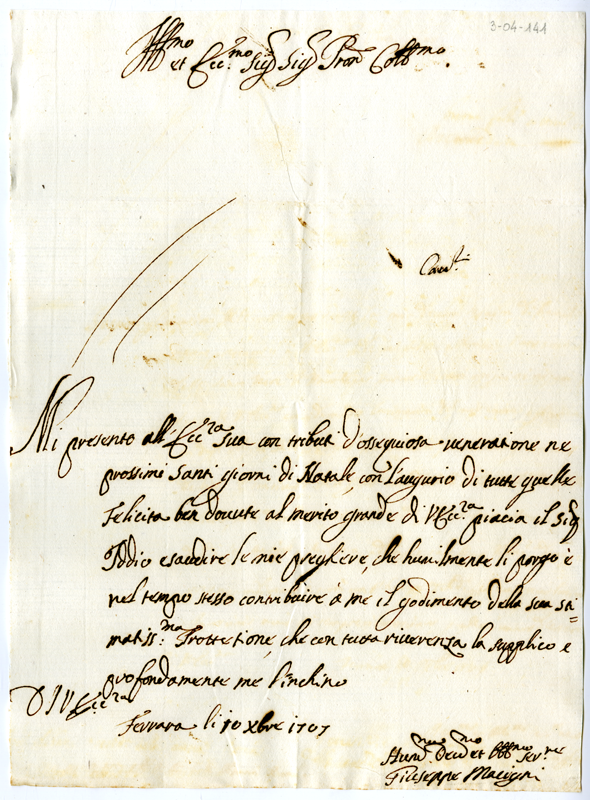 3-04-141
Ill.mo et Ecc.mo Sig.r Sig.r Pron Coll.mo
Mi presento all' Ecc.za sua con tributi d'ossequiosa veneratione ne
prossimi Santi giorni di Natale, con l'augurio di tutte quelle
Felicita ben dovute al merito grande di V Ecc.za piacia il Sig.r
Iddio esaudire le mie preghiere, che humilmente li porgo è
nel tempo stesso contribuire à me il godimento della sua sti=
matiss.ma Prottetione, che con tutta riverenza la supplico e
profondamente me l'inchino
D I V Ecc.za
Ferrara li 10 Xbre 1707
Hum.mo Dev.mo et Obb.mo Ser.re
Giuseppe